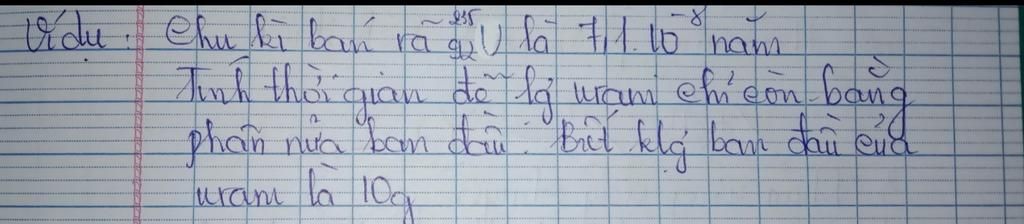 Ví dụ: Chu kì bán rã ²³⁵₉₂U là 7,1.10⁻⁸ năm
Tính thời gian để lg uram chỉ còn bằng
phần nửa ban đầu. Biết klg ban đầu của
uram là 10g